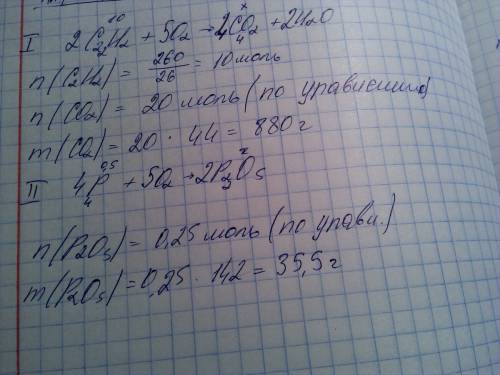 10 x
I 2C₂H₂ + 5O₂ → 4CO₂ + 2H₂O
2 4
n(C₂H₂) = 260/26 = 10 моль
n(CO₂) = 20 моль (по уравнению)
m(CO₂) = 20 · 44 = 880 г
0,5 x
II 4P + 5O₂ → 2P₂O₅
4
n(P₂O₅) = 0,25 моль (по уравн.)
m(P₂O₅) = 0,25 · 142 = 35,5 г